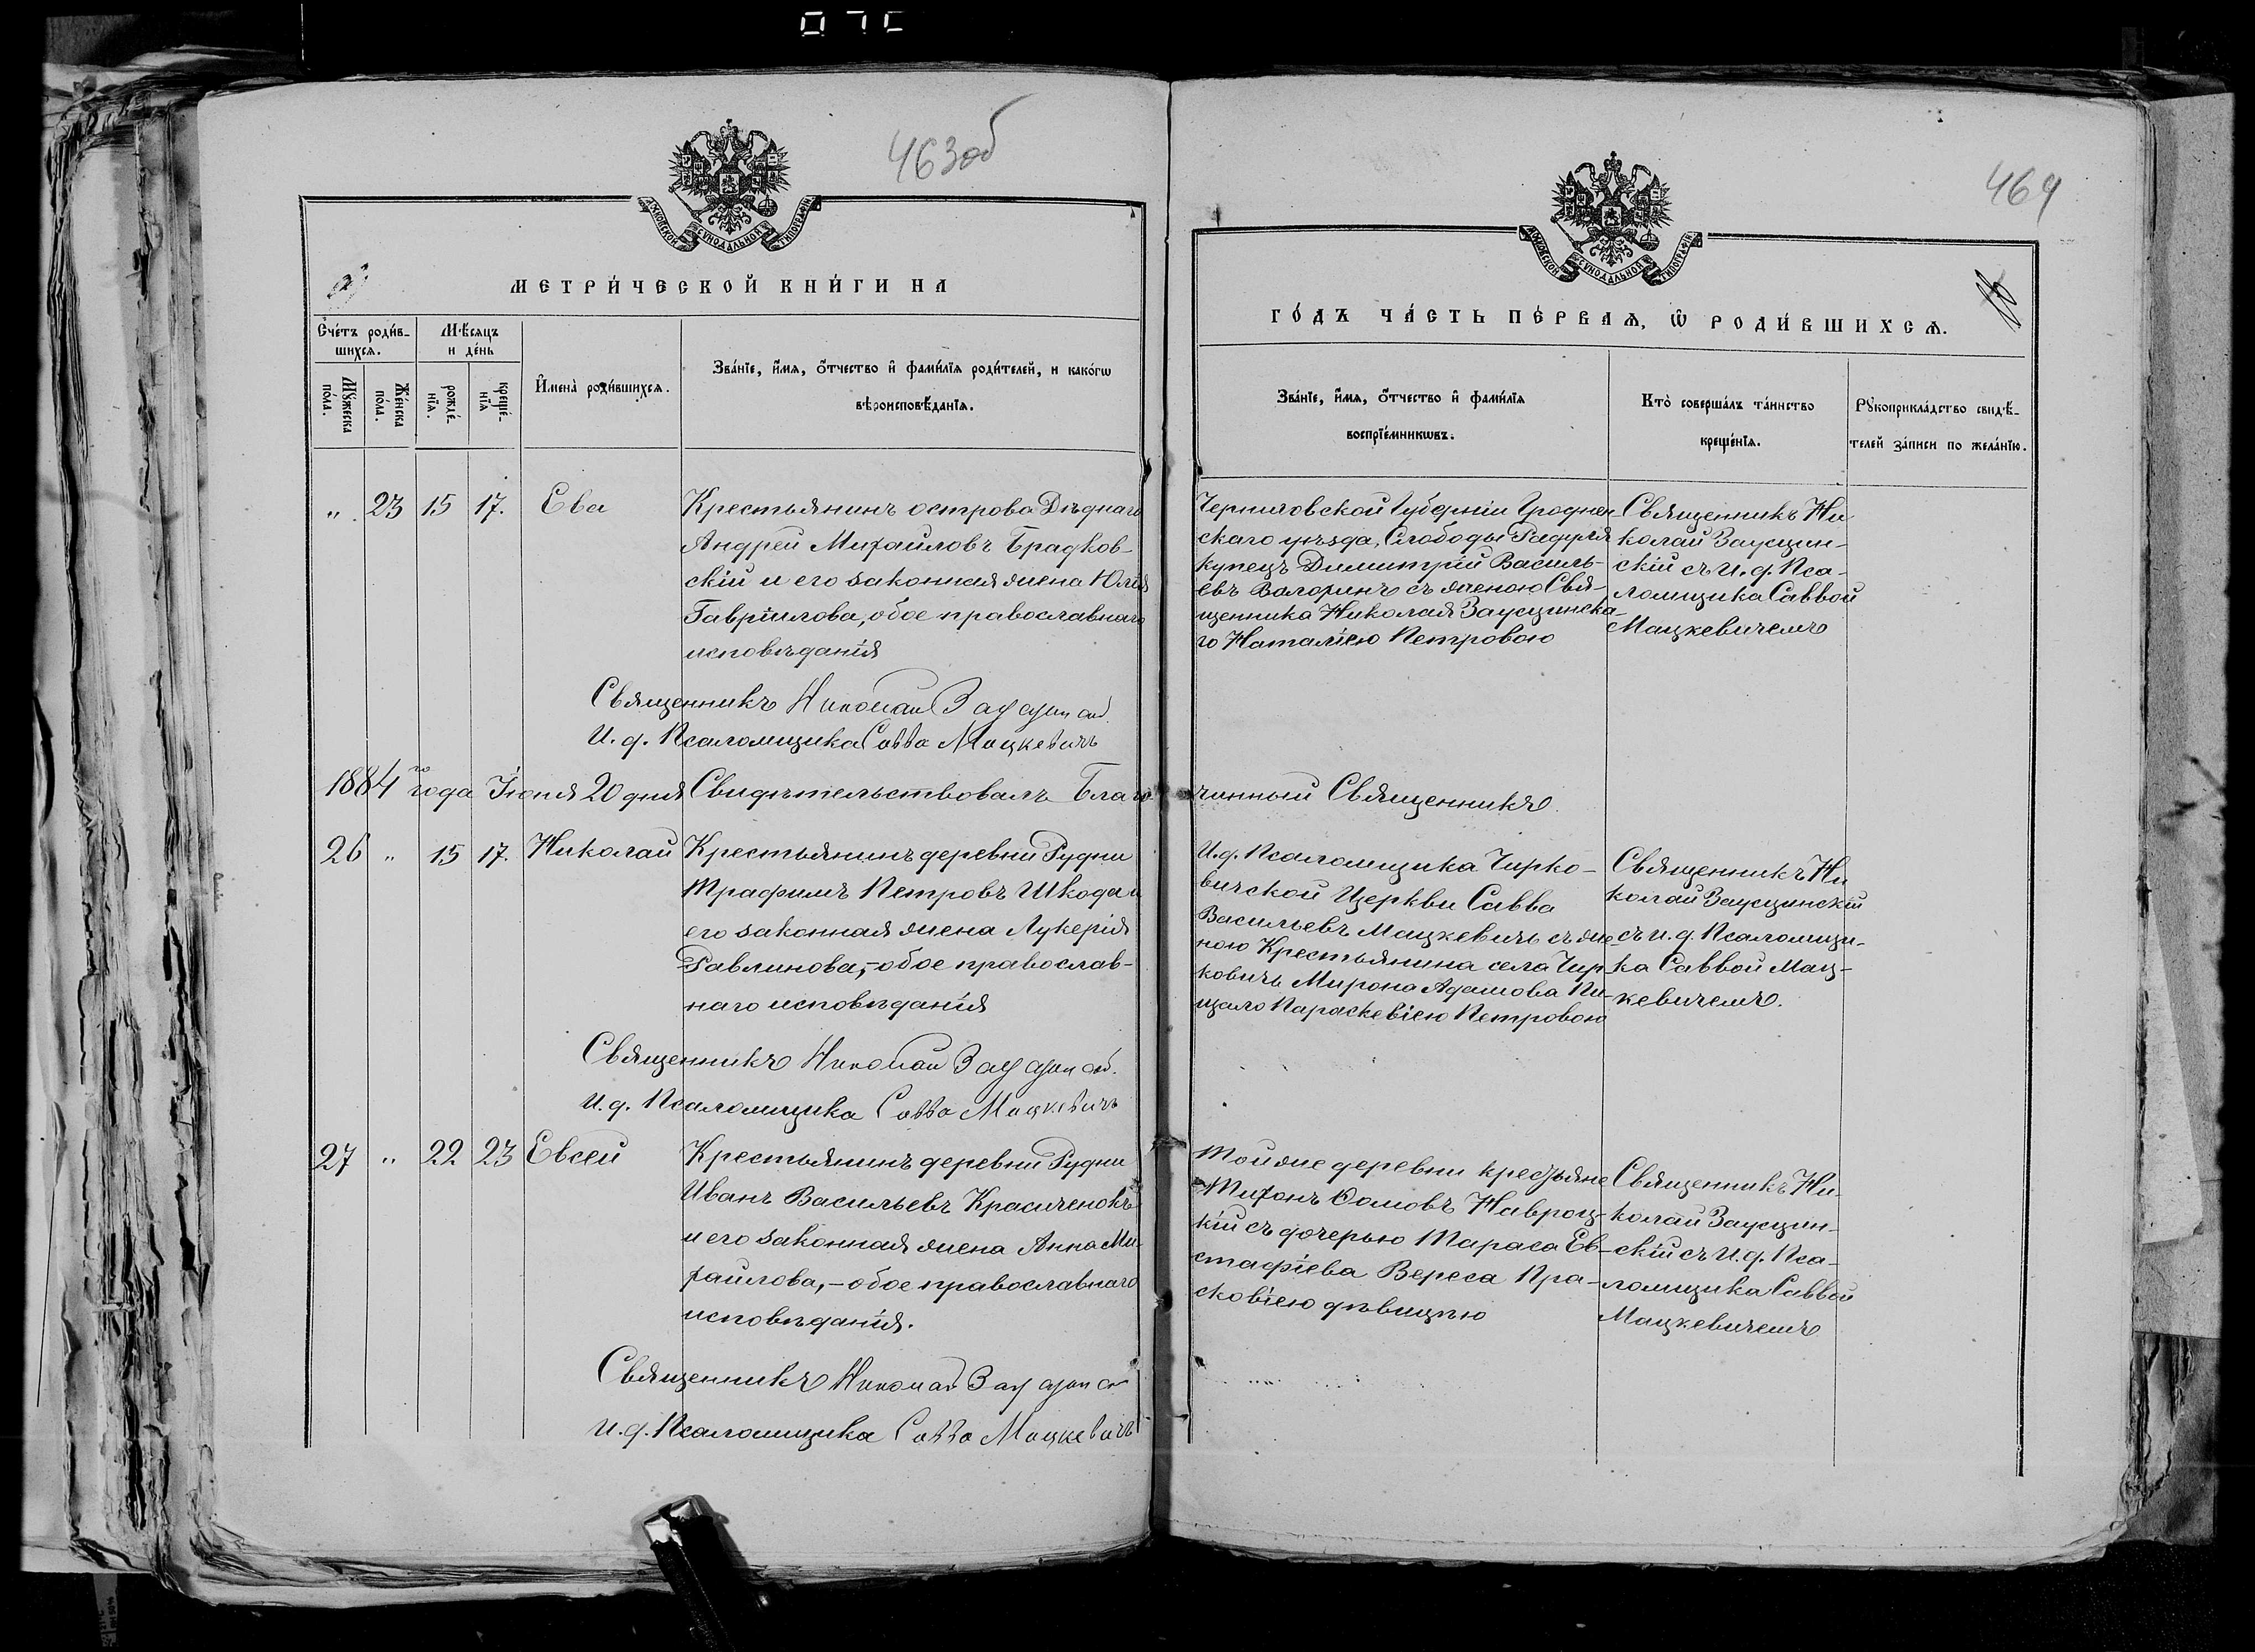 463об
МЕТРИ́ЧЕСКОЙ КНИ́ГИ НА
Сче́тъ роди́в-
шихся.
Мѣ́сяцъ
и де́нь
Мꙋ́жеска
по́ла.
Же́нска
по́ла.
рожде́-
нїя.
креще́-
нїя
И҆мена̀ роди́вшихся.
Зва́нїе, и҆́мя, ѻ҆́тчество и҆ фами́лїя роди́телей, и како́гѡ
вѣроисповѣ́данїя.
" 23 15 17. Ева
Крестьянинъ острова Дѣднаго
Андрей Михайловъ Брадков-
скій и его законная жена Юлія
Гавріилова, обое православнаго
исповѣданія
Священникъ Николай Заусцинскій
И. д. Псаломщика Савва Мацкевичъ
1884го года Іюня 20 дня Свидѣтельствовалъ Благо
26 " 15 17. Николай
Крестьянинъ деревни Рудни
Трафимъ Петровъ Шкода и
его законная жена Лукерія
Павлинова,- обое православ-
наго исповѣданія
Священникъ Николай Заусцинскій
И. д. Псаломщика Савва Мацкевичъ
27 " 22 23 Евсей
Крестьянинъ деревни Рудни
Иванъ Васильевъ Красиченокъ
и его законная жена Анна Ми-
хайлова,- обое православнаго
исповѣданія.
Священникъ Николай Заусцинскій
И. д. Псаломщика Савва Мацкевичъ
464
ГО́ДЪ ЧА́СТЬ ПЕ́РВАЯ, Ѡ҆ РОДИ́ВШИХСЯ.
Зва́нїе, и҆́мя, ѻ҆́тчество и҆ фами́лїя
воспрїе́мникѡвъ.
Кто̀ соверша́лъ та́инство
креще́нїя.
Рꙋкоприкла́дство свидѣ́-
телей за́писи по жела́нїю.
Черниговской Губерніи Гроднен
скаго уѣзда, Слободы Радуля
купецъ Димитрій Василь-
евъ Волохинъ съ женою Свя-
щенника Николая Заусцинска-
го Наталіею Петровою
Священникъ Ни
колай Заусцин-
скій съ И. д. Пса-
ломщика Саввой
Мацкевичемъ
чинный Священникъ
И. д. Псаломщика Чирко-
вичской Церкви Савва
Васильевъ Мацкевичъ съ же-
ною Крестьянина села Чир-
ковичъ Мирона Адамова Пи-
щало Параскевіею Петровою
Священникъ Ни
колай Заусцинскій
съ И. д. Псаломщи-
ка Саввой Мац-
кевичемъ.
Той же деревни крестьяне
Тихонъ Ѳомовъ Навроц-
кій съ дочерью Тараса Ев-
стафіева Вереса Пра-
сковіею дѣвицею
Священникъ Ни-
колай Заусцин-
скій съ И. д. Пса-
ломщика Саввой
Мацкевичемъ